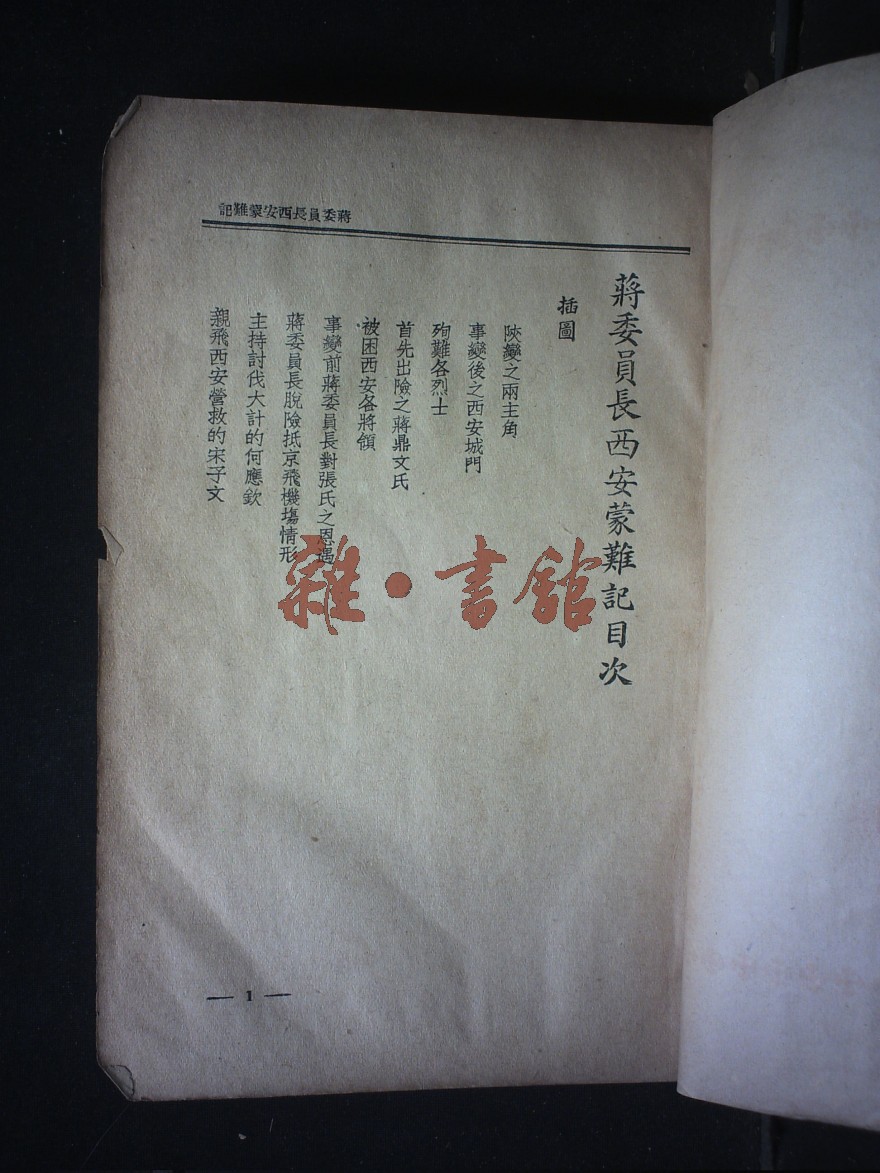 記難蒙安西長員委蔣
蔣委員長西安蒙難記目次
插圖
陝變之兩主角
事變後之西安城門
殉難各烈士
首先出險之蔣鼎文氏
被困西安各將領
事變前蔣委員長對張氏之恩遇
蔣委員長脫險抵京飛機塲情形
主持討伐大計的何應欽
親飛西安營救的宋子文
雜·書館
— 1 —